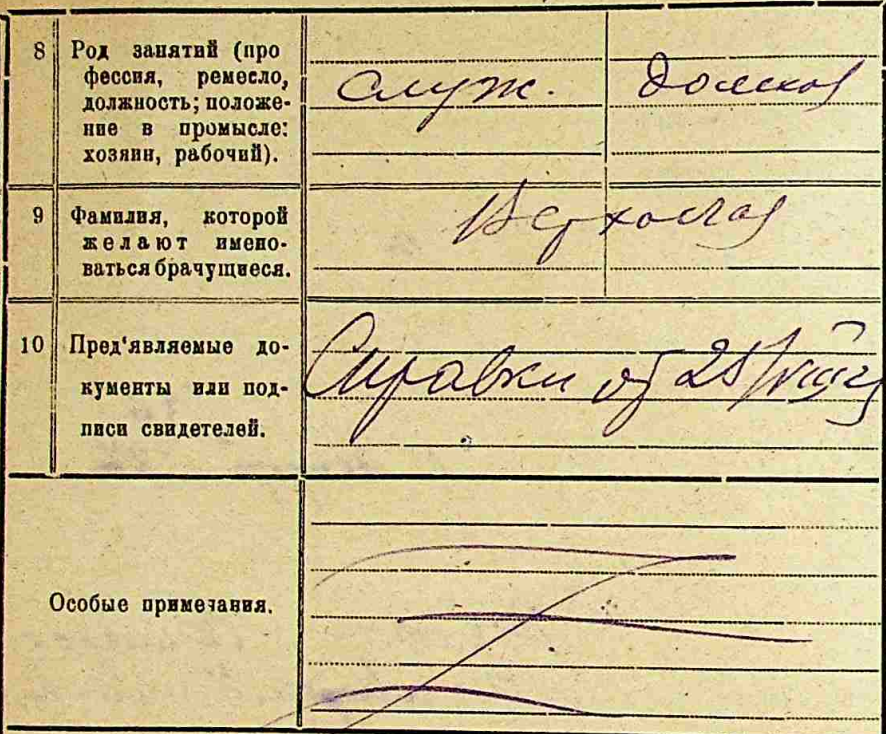 8 Род занятий (про
фессия, ремесло,
должность; положе-
ние в промысле:
хозяин, рабочий).
служ.
9 Фамилия, которой
желают имено-
ваться брачущиеся.
10 Пред'являемые до-
кументы или под-
писи свидетелей.
Справки от
Особые примечания.